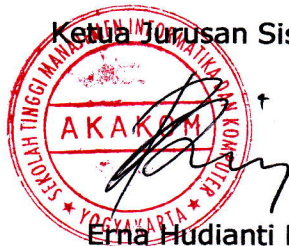 Ketua Jurusan Sis
SEKOLAH TINGGI MANAJEMEN INFORMATIKA DAN KOMPUTER
AKAKOM
★ YOGYAKARTA ★
Erna Hudianti